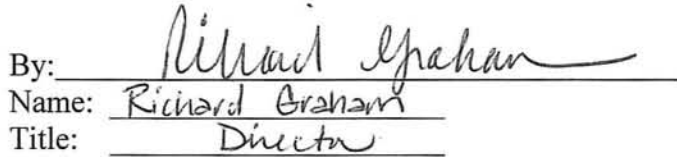 By: Richard Graham
Name: Richard Graham
Title: Director